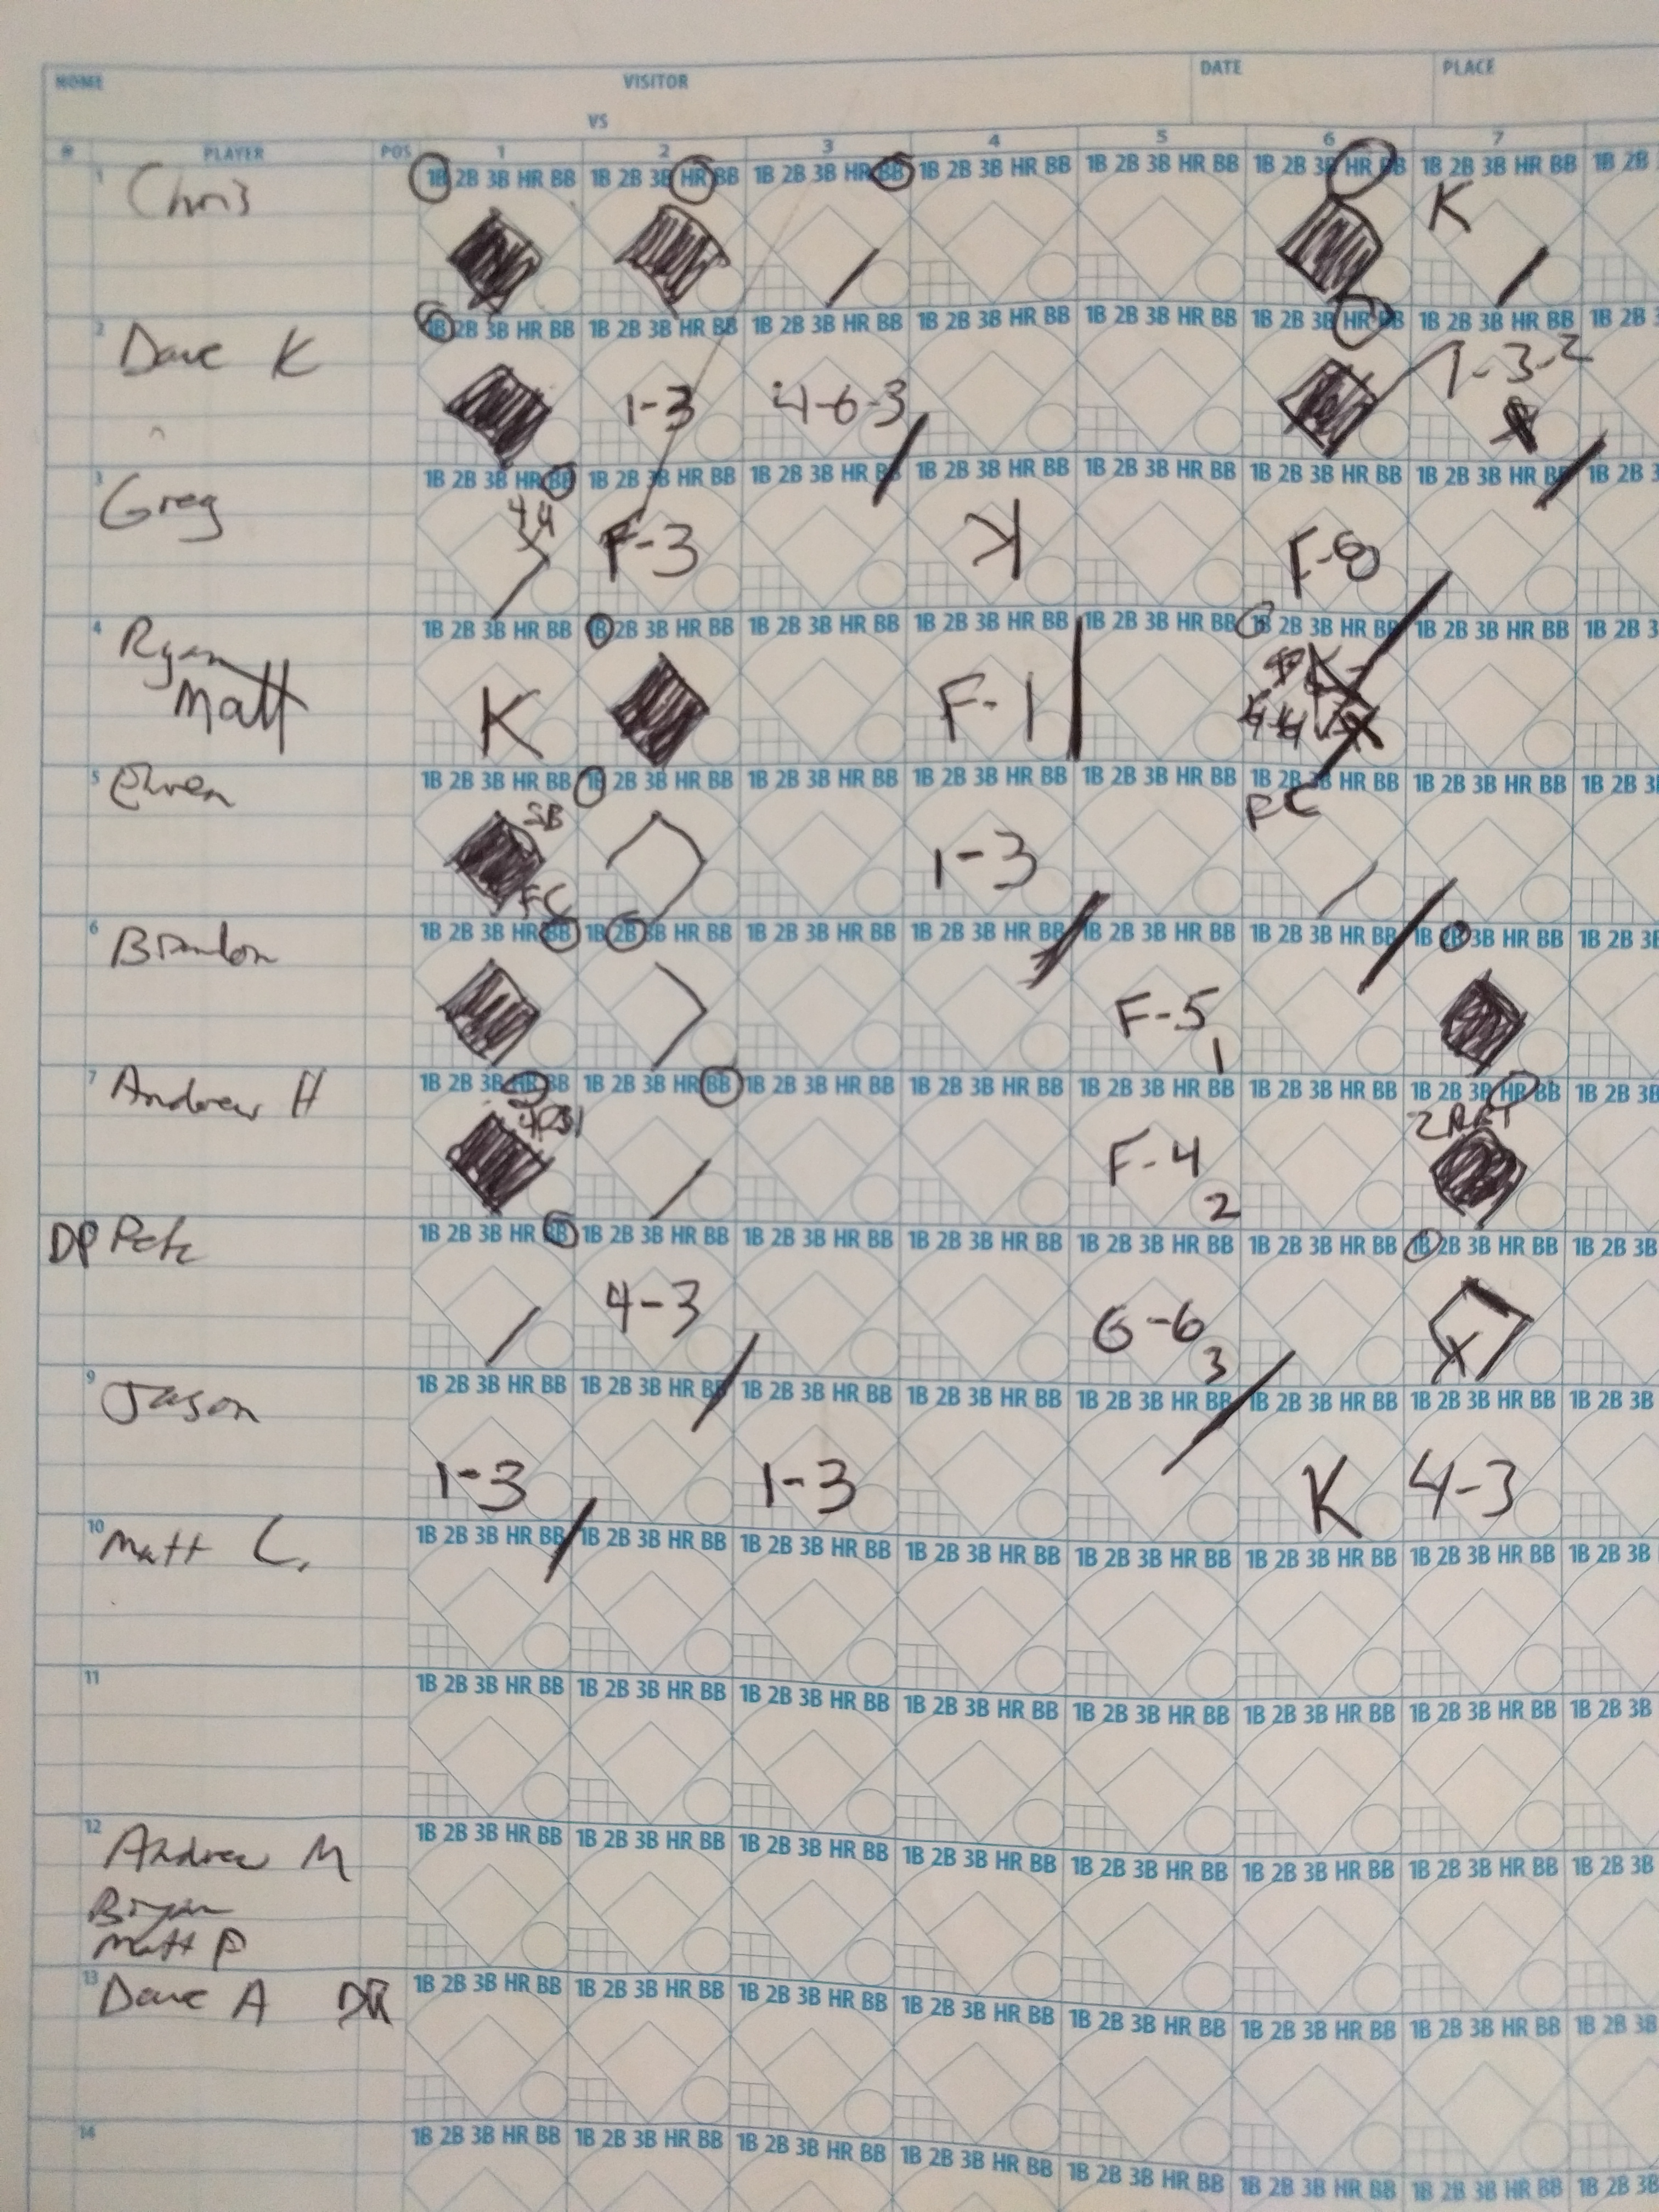 HOME VISITOR DATE PLACE
VS
# PLAYER POS 1 2 3 4 5 6 7
1 1B 2B 3B HR BB 1B 2B 3B HR BB 1B 2B 3B HR BB 1B 2B 3B HR BB 1B 2B 3B HR BB 1B 2B 3B HR BB 1B 2B 3B HR BB 1B 2B
Chris K
2 1B 2B 3B HR BB 1B 2B 3B HR BB 1B 2B 3B HR BB 1B 2B 3B HR BB 1B 2B 3B HR BB 1B 2B 3B HR BB 1B 2B 3B HR BB 1B 2B 3
Dave K 1-3 4-6-3 1-3-2
3 1B 2B 3B HR BB 1B 2B 3B HR BB 1B 2B 3B HR BB 1B 2B 3B HR BB 1B 2B 3B HR BB 1B 2B 3B HR BB 1B 2B 3B HR BB 1B 2B 3
Greg F-3 K F-8
4 1B 2B 3B HR BB 1B 2B 3B HR BB 1B 2B 3B HR BB 1B 2B 3B HR BB 1B 2B 3B HR BB 1B 2B 3B HR BB 1B 2B 3B HR BB 1B 2B 3
Ryan
Matt K F-1
5 1B 2B 3B HR BB 1B 2B 3B HR BB 1B 2B 3B HR BB 1B 2B 3B HR BB 1B 2B 3B HR BB 1B 2B 3B HR BB 1B 2B 3B HR BB 1B 2B 3
Ehren SB FC 1-3 FC
6 1B 2B 3B HR BB 1B 2B 3B HR BB 1B 2B 3B HR BB 1B 2B 3B HR BB 1B 2B 3B HR BB 1B 2B 3B HR BB 1B 2B 3B HR BB 1B 2B 3B
Brandon F-5 1
7 1B 2B 3B HR BB 1B 2B 3B HR BB 1B 2B 3B HR BB 1B 2B 3B HR BB 1B 2B 3B HR BB 1B 2B 3B HR BB 1B 2B 3B HR BB 1B 2B 3B
Andrew H 4RBI F-4 2
1B 2B 3B HR BB 1B 2B 3B HR BB 1B 2B 3B HR BB 1B 2B 3B HR BB 1B 2B 3B HR BB 1B 2B 3B HR BB 1B 2B 3B HR BB 1B 2B 3B
DP Pete 4-3 G-6 3
9 1B 2B 3B HR BB 1B 2B 3B HR BB 1B 2B 3B HR BB 1B 2B 3B HR BB 1B 2B 3B HR BB 1B 2B 3B HR BB 1B 2B 3B HR BB 1B 2B 3B
Jason 1-3 1-3 K 4-3
10 1B 2B 3B HR BB 1B 2B 3B HR BB 1B 2B 3B HR BB 1B 2B 3B HR BB 1B 2B 3B HR BB 1B 2B 3B HR BB 1B 2B 3B HR BB 1B 2B 3B
Matt C.
11 1B 2B 3B HR BB 1B 2B 3B HR BB 1B 2B 3B HR BB 1B 2B 3B HR BB 1B 2B 3B HR BB 1B 2B 3B HR BB 1B 2B 3B HR BB 1B 2B 3B
12 1B 2B 3B HR BB 1B 2B 3B HR BB 1B 2B 3B HR BB 1B 2B 3B HR BB 1B 2B 3B HR BB 1B 2B 3B HR BB 1B 2B 3B HR BB 1B 2B 3B
Andrew M
Bryan
Matt P
13 1B 2B 3B HR BB 1B 2B 3B HR BB 1B 2B 3B HR BB 1B 2B 3B HR BB 1B 2B 3B HR BB 1B 2B 3B HR BB 1B 2B 3B HR BB 1B 2B 3B
Dave A
14 1B 2B 3B HR BB 1B 2B 3B HR BB 1B 2B 3B HR BB 1B 2B 3B HR BB 1B 2B 3B HR BB 1B 2B 3B HR BB 1B 2B 3B HR BB 1B 2B 3B